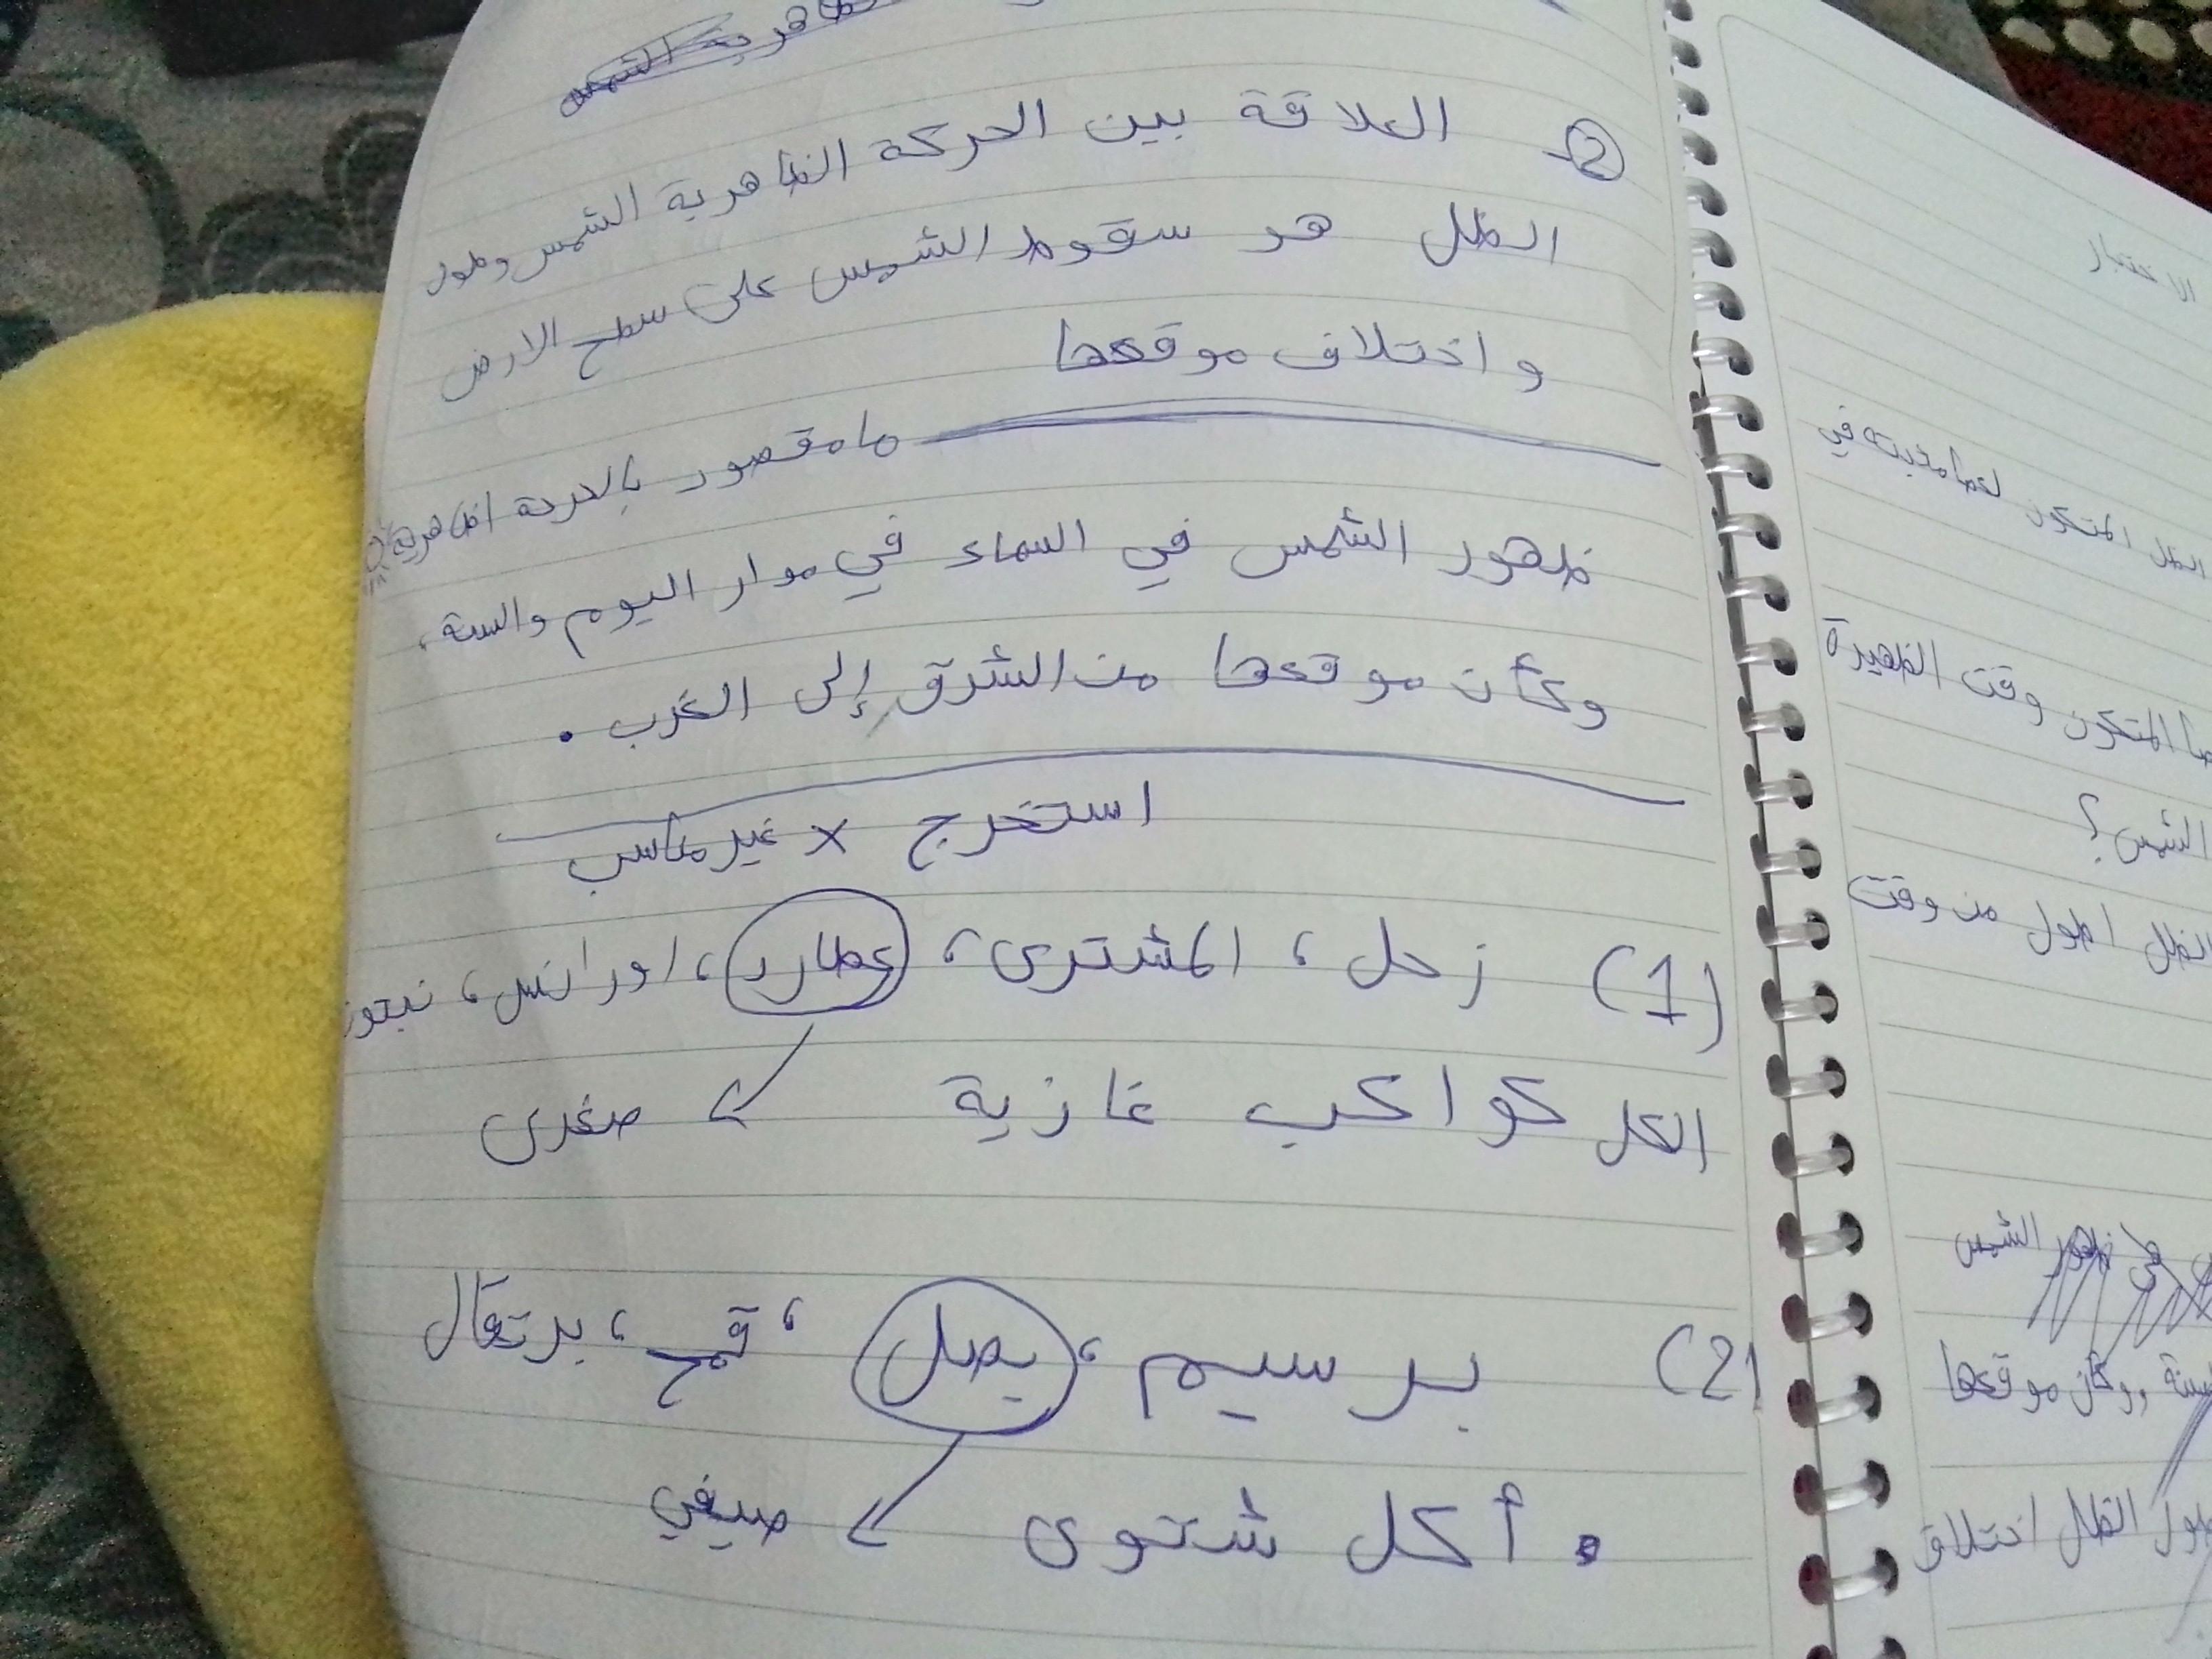 ② العلاقة بين الحركة الظاهرية الشمس وطول
الظل هو سقوط الشمس على سطح الارض
واختلاف موقعها
ما مقصود بالحركة الظاهرية
ظهور الشمس في السماء في مدار اليوم والسنة،
وكأن موقعها من الشرق إلى الغرب.
استخرج x غير مناسب
(1) زحل، المشترى، عطارد، اورانس، نبتون
الكل كواكب غازية صغرى
(2) برسيم، بصل، قمح، برتقال
أكل شتوى صيفي
الاختبار
الظل المتكون لعصا مثبتة في
المتكون وقت الظهيرة
الشمس؟
الظل اطول من وقت
ظهور الشمس
وكأن موقعها
طول الظل اختلاف